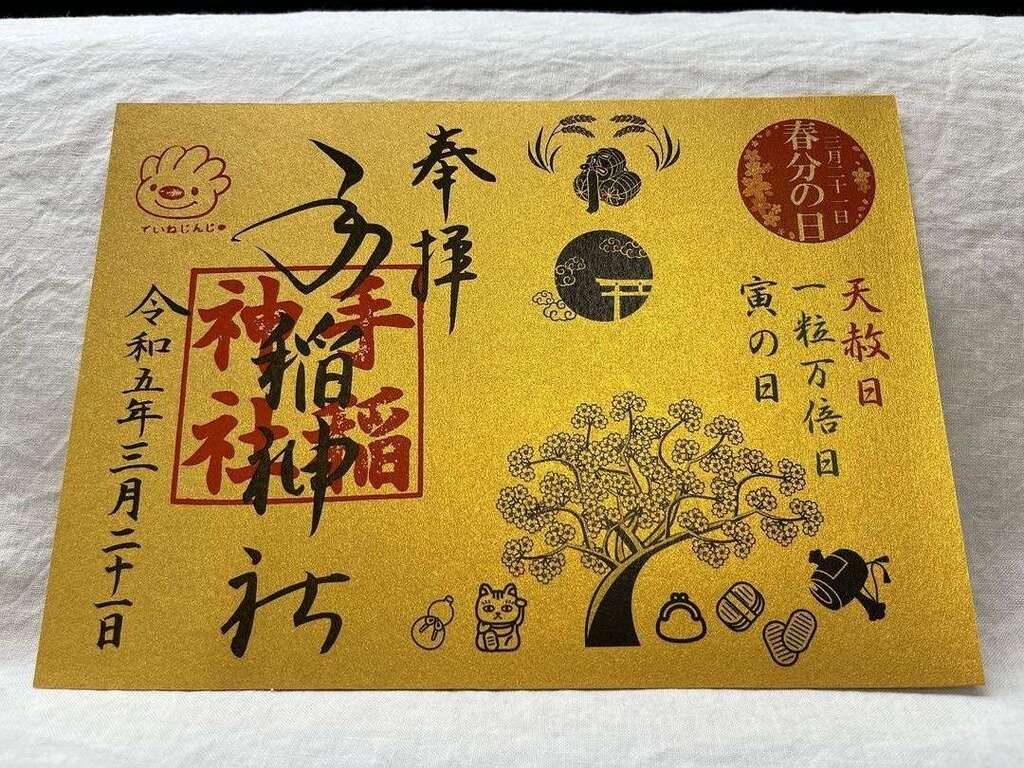 三月二十一日
春分の日
天赦日
一粒万倍日
寅の日
奉拝
手稲神社
手稲
神社
令和五年三月二十一日
ていねじんじゃ